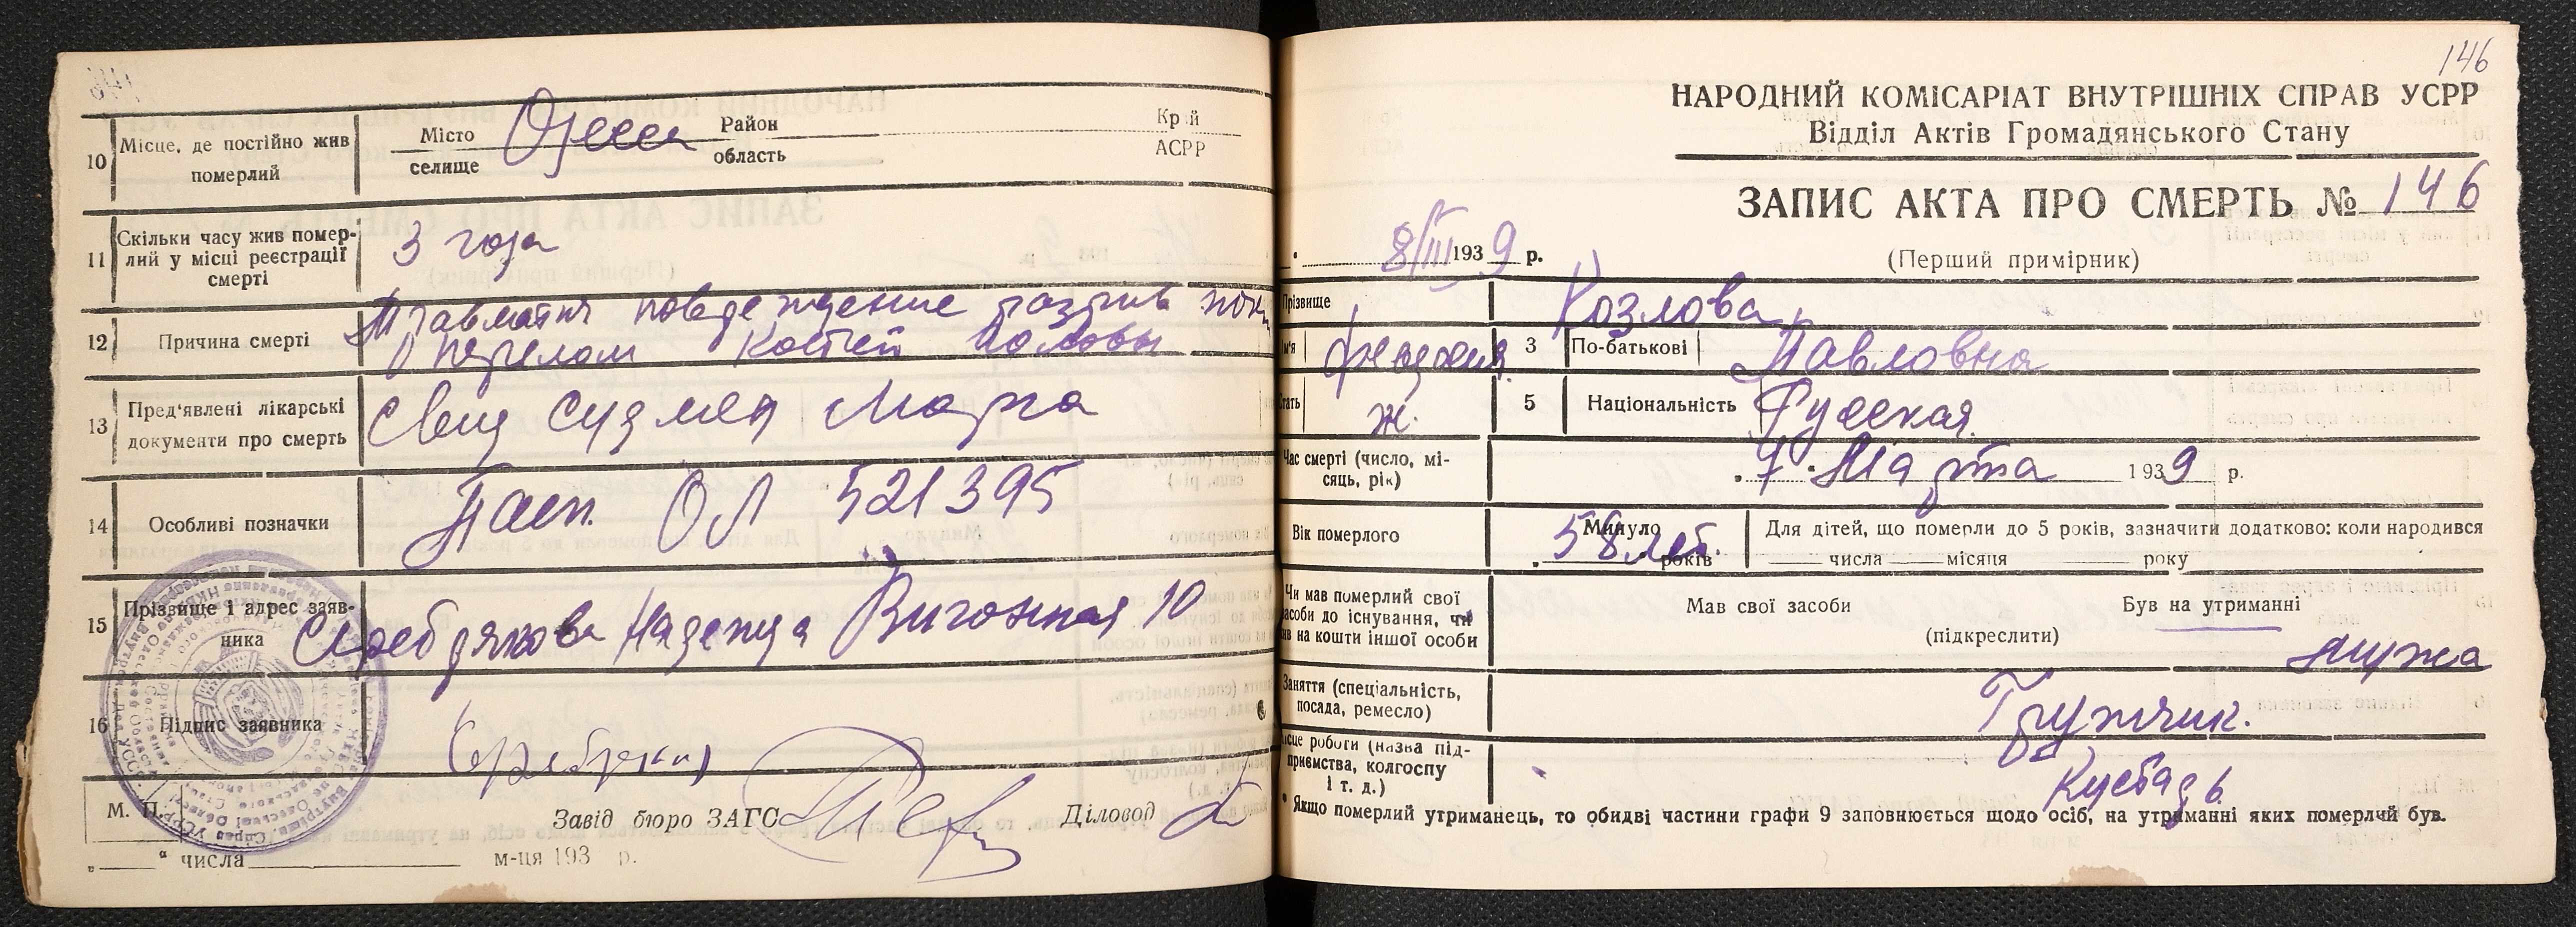 10 Місце, де постійно жив померлий
Місто селище Одесса Район область Край АСРР
11 Скільки часу жив померлий у місці реєстрації смерті
3 года
12 Причина смерті
повреждение
перелом костей головы
13 Пред'явлені лікарські документи про смерть
Свид Суд мед Морга
14 Особливі позначки
Пасп. ОЛ 521395
15 Прізвище і адрес заявника
Серебрякова Надежда 10
16 Підпис заявника
М. П. Завід бюро ЗАГС Діловод
„ “ числа м-ця 193 р.
146
НАРОДНИЙ КОМІСАРІАТ ВНУТРІШНІХ СПРАВ УСРР
Відділ Актів Громадянського Стану
ЗАПИС АКТА ПРО СМЕРТЬ № 146
8/III 1939 р. (Перший примірник)
Прізвище Козлова
Ім'я 3 По-батькові Павловна
Стать ж. 5 Національність Русская
Час смерті (число, місяць, рік) „7“ Марта 1939 р.
Вік померлого Минуло 58 лет. років
Для дітей, що померли до 5 років, зазначити додатково: коли народився
числа місяця року
Чи мав померлий свої засоби до існування, чи жив на кошти іншої особи
Мав свої засоби Був на утриманні
(підкреслити)
мужа
Заняття (спеціальність, посада, ремесло)
Грузчик.
Місце роботи (назва підприємства, колгоспу і т. д.)
* Якщо померлий утриманець, то обидві частини графи 9 заповнюється щодо осіб, на утриманні яких померлий був.